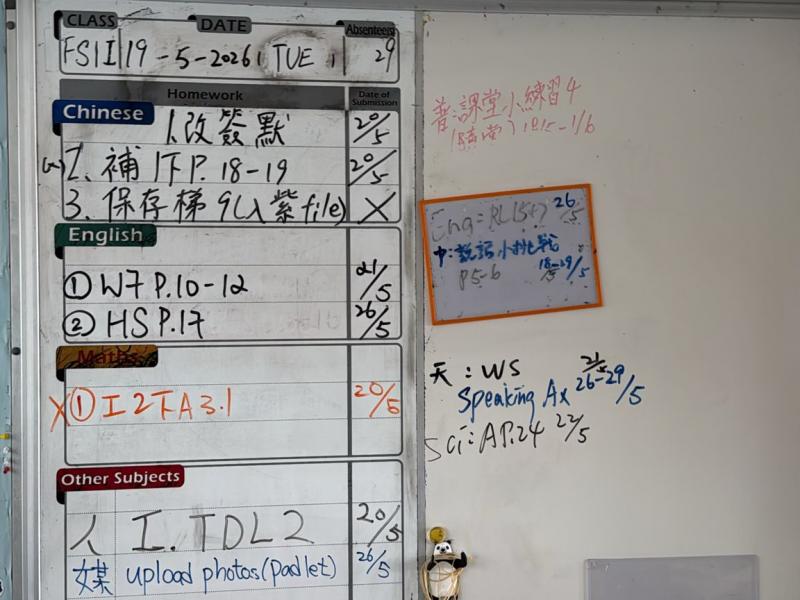 CLASS DATE Absentees
FSII 19-5-2026, TUE, 29
Homework Date of Submission
Chinese
1.改簽默 20/5
2.補1下P.18-19 20/5
3.保存梯9(入紫file) X
English
① W7 P.10-12 21/5
② HS P.17 26/5
Maths
X① 工2下A3.1 20/5
Other Subjects
人 I.TDL2 20/5
媒 upload photos(padlet) 26/5
普:課堂小練習4
1/6
Eng= 26/5
中:說話小挑戰
P5-6 18-29/5
天:WS 21
Speaking Ax 26-29/5
Sci:AP.24 22/5